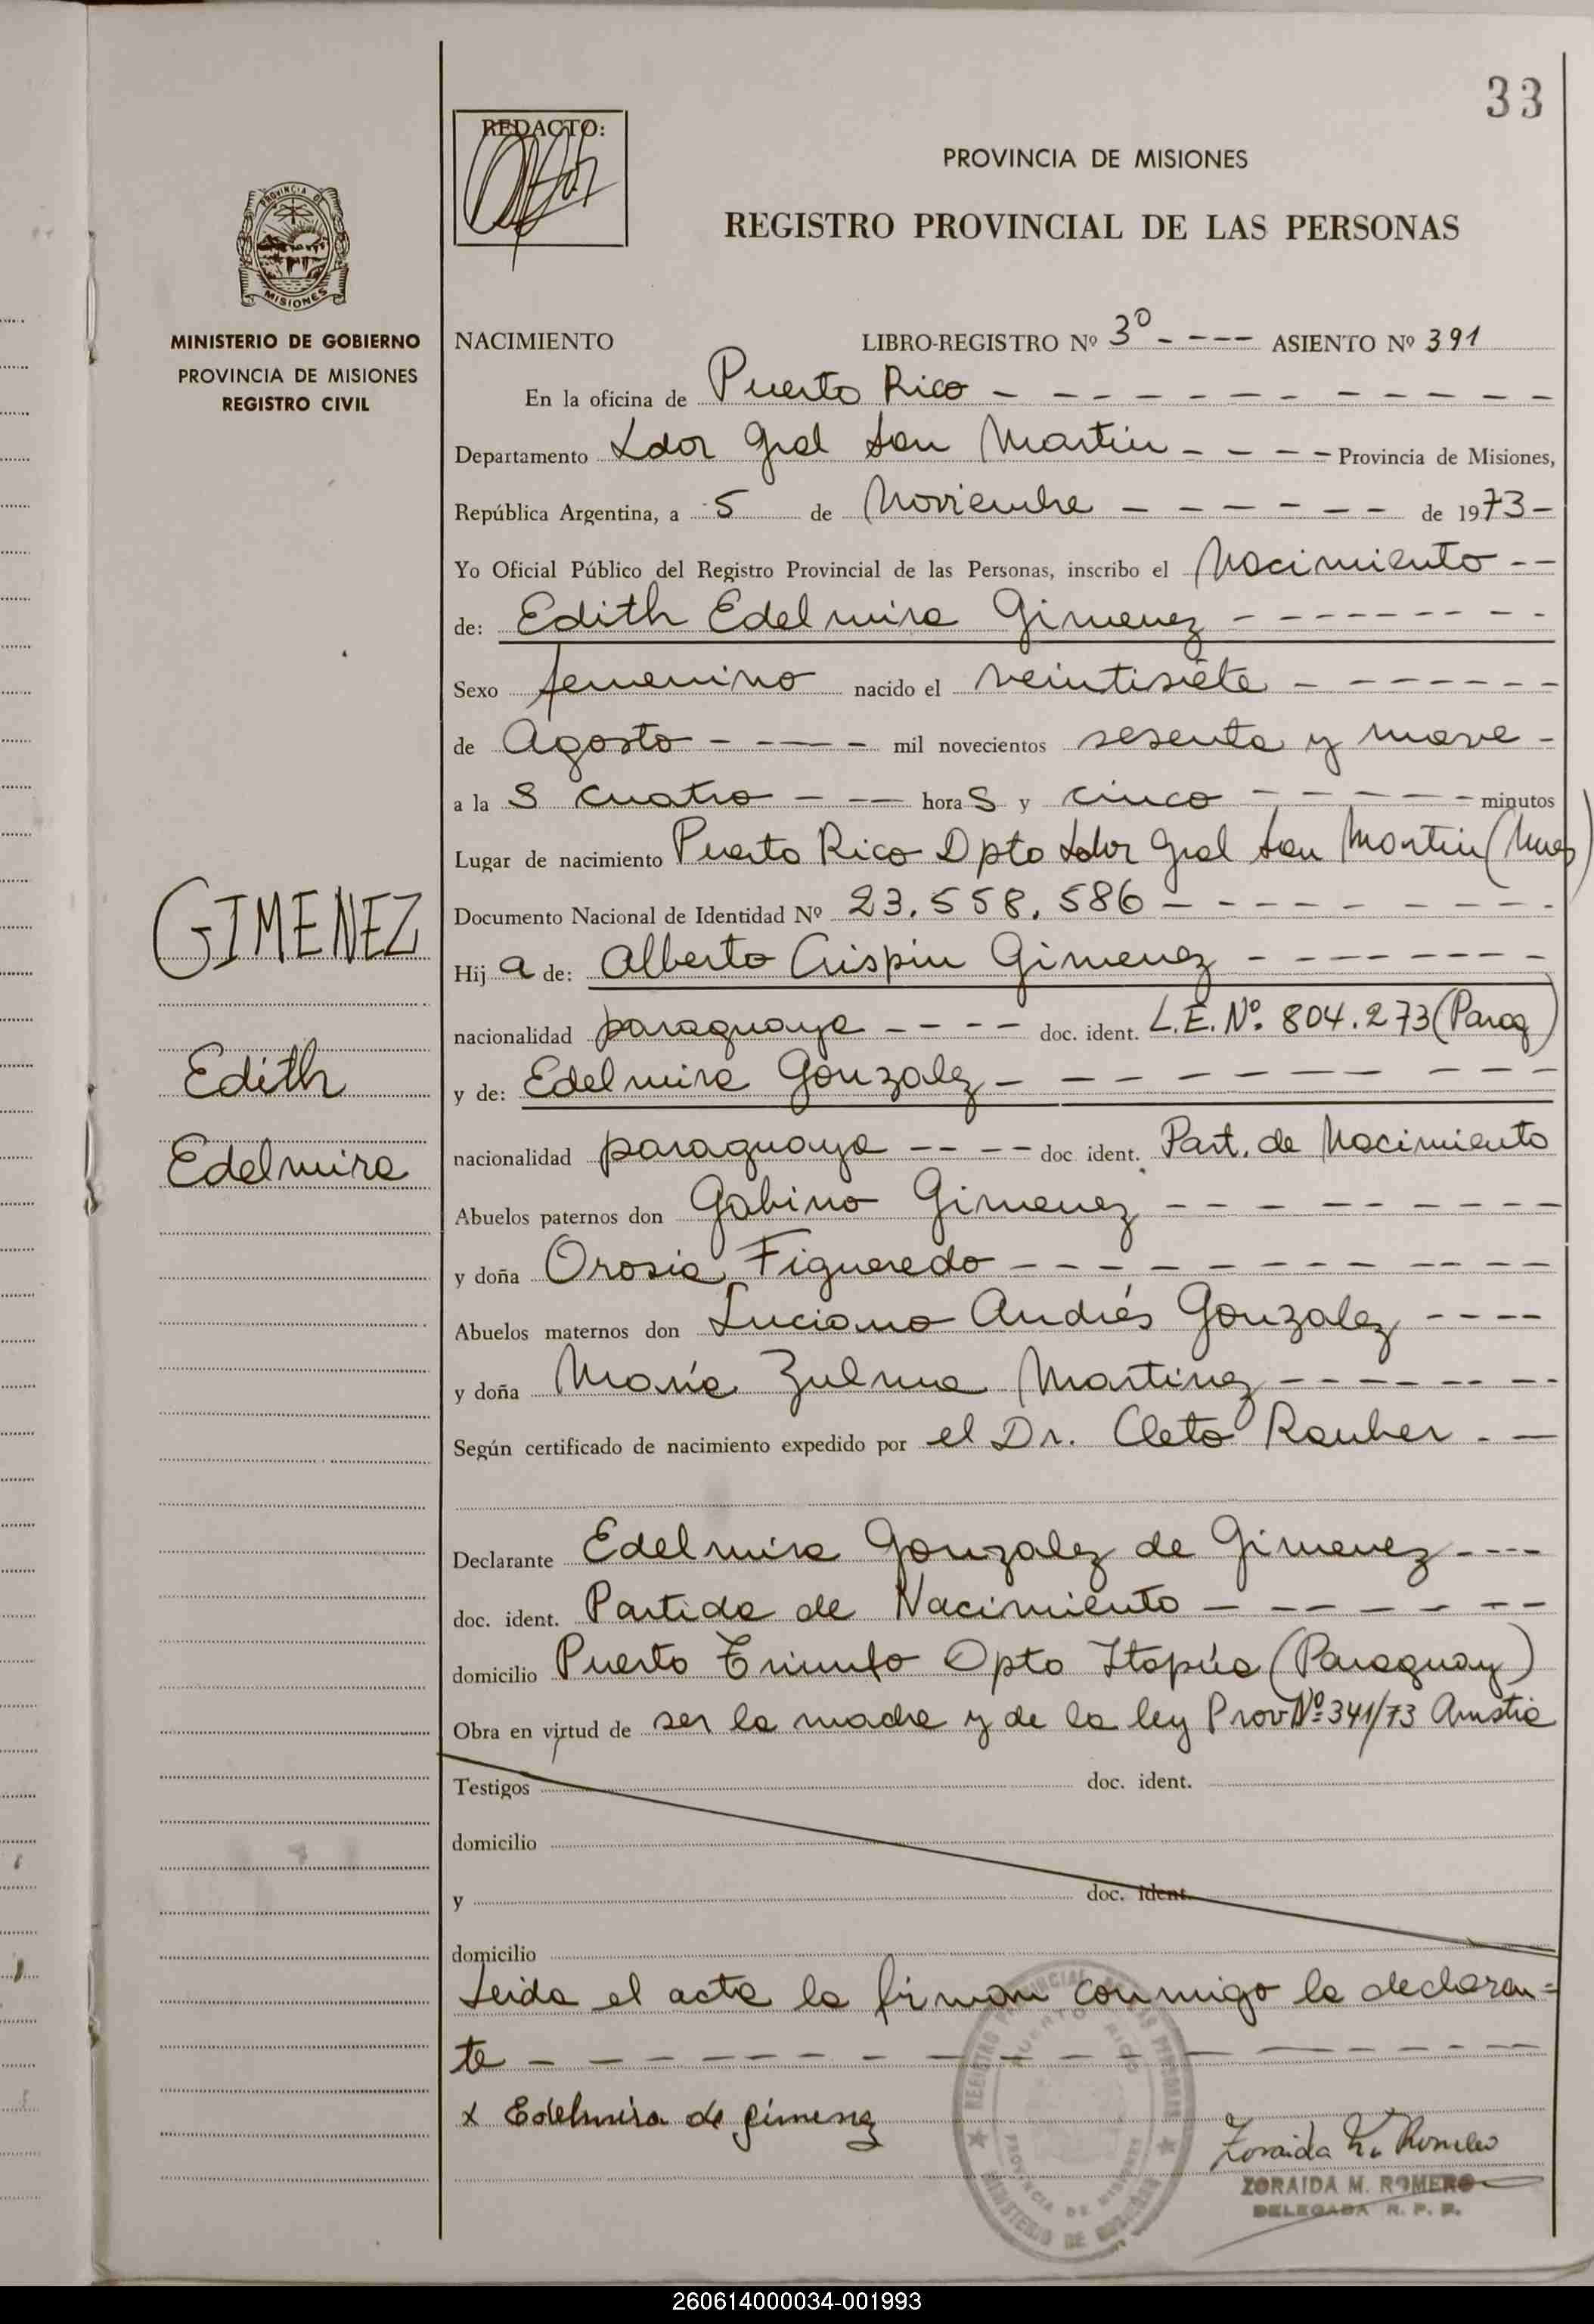 33
REDACTO:
PROVINCIA DE MISIONES
REGISTRO PROVINCIAL DE LAS PERSONAS
PROVINCIA DE
MISIONES
MINISTERIO DE GOBIERNO
PROVINCIA DE MISIONES
REGISTRO CIVIL
GIMENEZ
Edith
Edelmira
NACIMIENTO LIBRO-REGISTRO Nº 3º - - - - ASIENTO Nº 391
En la oficina de Puerto Rico - - - - - - - - - - -
Departamento Ldor Gral San Martin - - - - Provincia de Misiones,
República Argentina, a 5 de Noviembre - - - - - - de 1973-
Yo Oficial Público del Registro Provincial de las Personas, inscribo el Nacimiento - -
de: Edith Edelmira Gimenez - - - - - - - -
Sexo femenino nacido el veintisiete - - - - - - -
de Agosto - - - - - mil novecientos sesenta y nueve -
a la s cuatro - - - - hora s y cinco - - - - - - minutos
Lugar de nacimiento Puerto Rico Dpto Ldor Gral San Martin (Mnes)
Documento Nacional de Identidad Nº 23.558.586 - - - - - - - - -
Hij a de: Alberto Crispin Gimenez - - - - - - - -
nacionalidad paraguaya - - - - doc. ident. L.E. Nº. 804.273 (Parag)
y de: Edelmira Gonzalez - - - - - - - - - - -
nacionalidad paraguaya - - - - doc ident. Part. de Nacimiento
Abuelos paternos don Gabino Gimenez - - - - - - - - -
y doña Orosia Figueredo - - - - - - - - - - - -
Abuelos maternos don Luciano Andrés Gonzalez - - - -
y doña María Zulma Martinez - - - - - - - -
Según certificado de nacimiento expedido por el Dr. Cleto Rauber - -
Declarante Edelmira Gonzalez de Gimenez - - - -
doc. ident. Partida de Nacimiento - - - - - - - -
domicilio Puerto Triunfo Dpto Itapúa (Paraguay)
Obra en virtud de ser la madre y de la ley Prov Nº 341/73 Amstia
Testigos doc. ident.
domicilio
y doc. ident.
domicilio
Leida el acta la firman conmigo la declaran=
te - - - - - - - - - - - - - - - - -
x Edelmira de gimenez
REGISTRO PROVINCIAL DE LAS PERSONAS
PUERTO RICO
PROVINCIA DE MISIONES
MINISTERIO DE GOBIERNO
Zoraida M. Romero
ZORAIDA M. ROMERO
DELEGADA R. P. P.
260614000034-001993